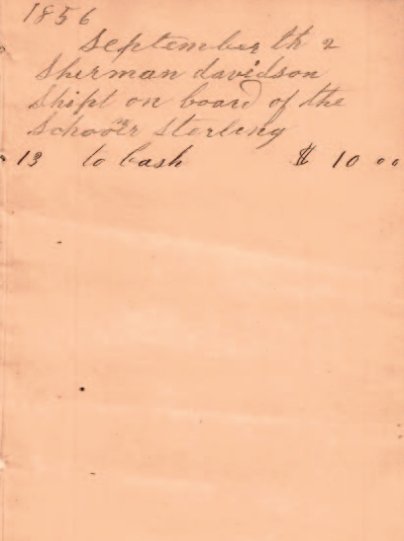 1856
September th 2
Sherman davidson
Shipt on board of the
Schooner Sterling
13 to Cash $ 10 00